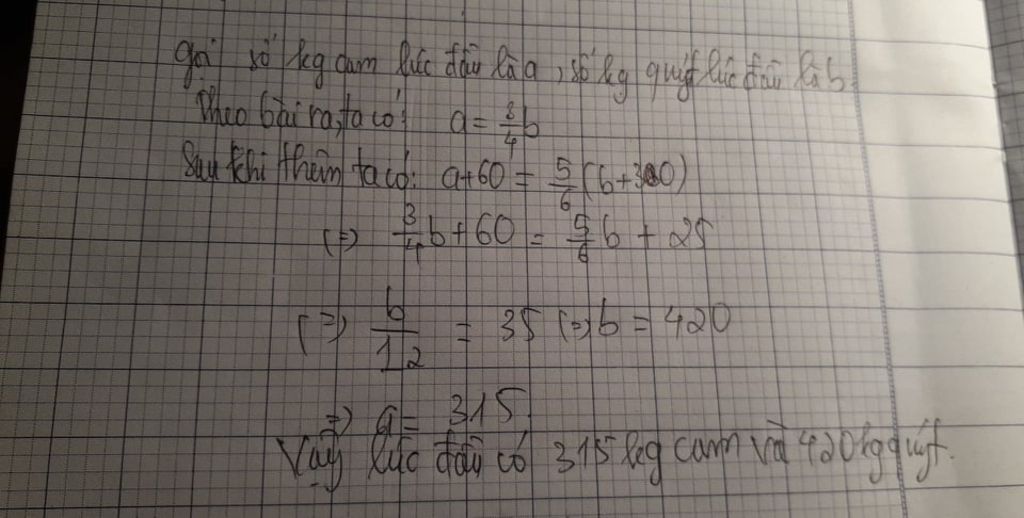 gọi số kg cam lúc đầu là a, số kg quýt lúc đầu là b
Theo bài ra, ta có: a = 3/4 b
Sau khi thêm ta có: a+60 = 5/6 (b+30)
(=) 3/4 b + 60 = 5/6 b + 25
(=) b/12 = 35 (=) b = 420
=) a = 315
Vậy lúc đầu có 315 kg cam và 420 kg quýt.